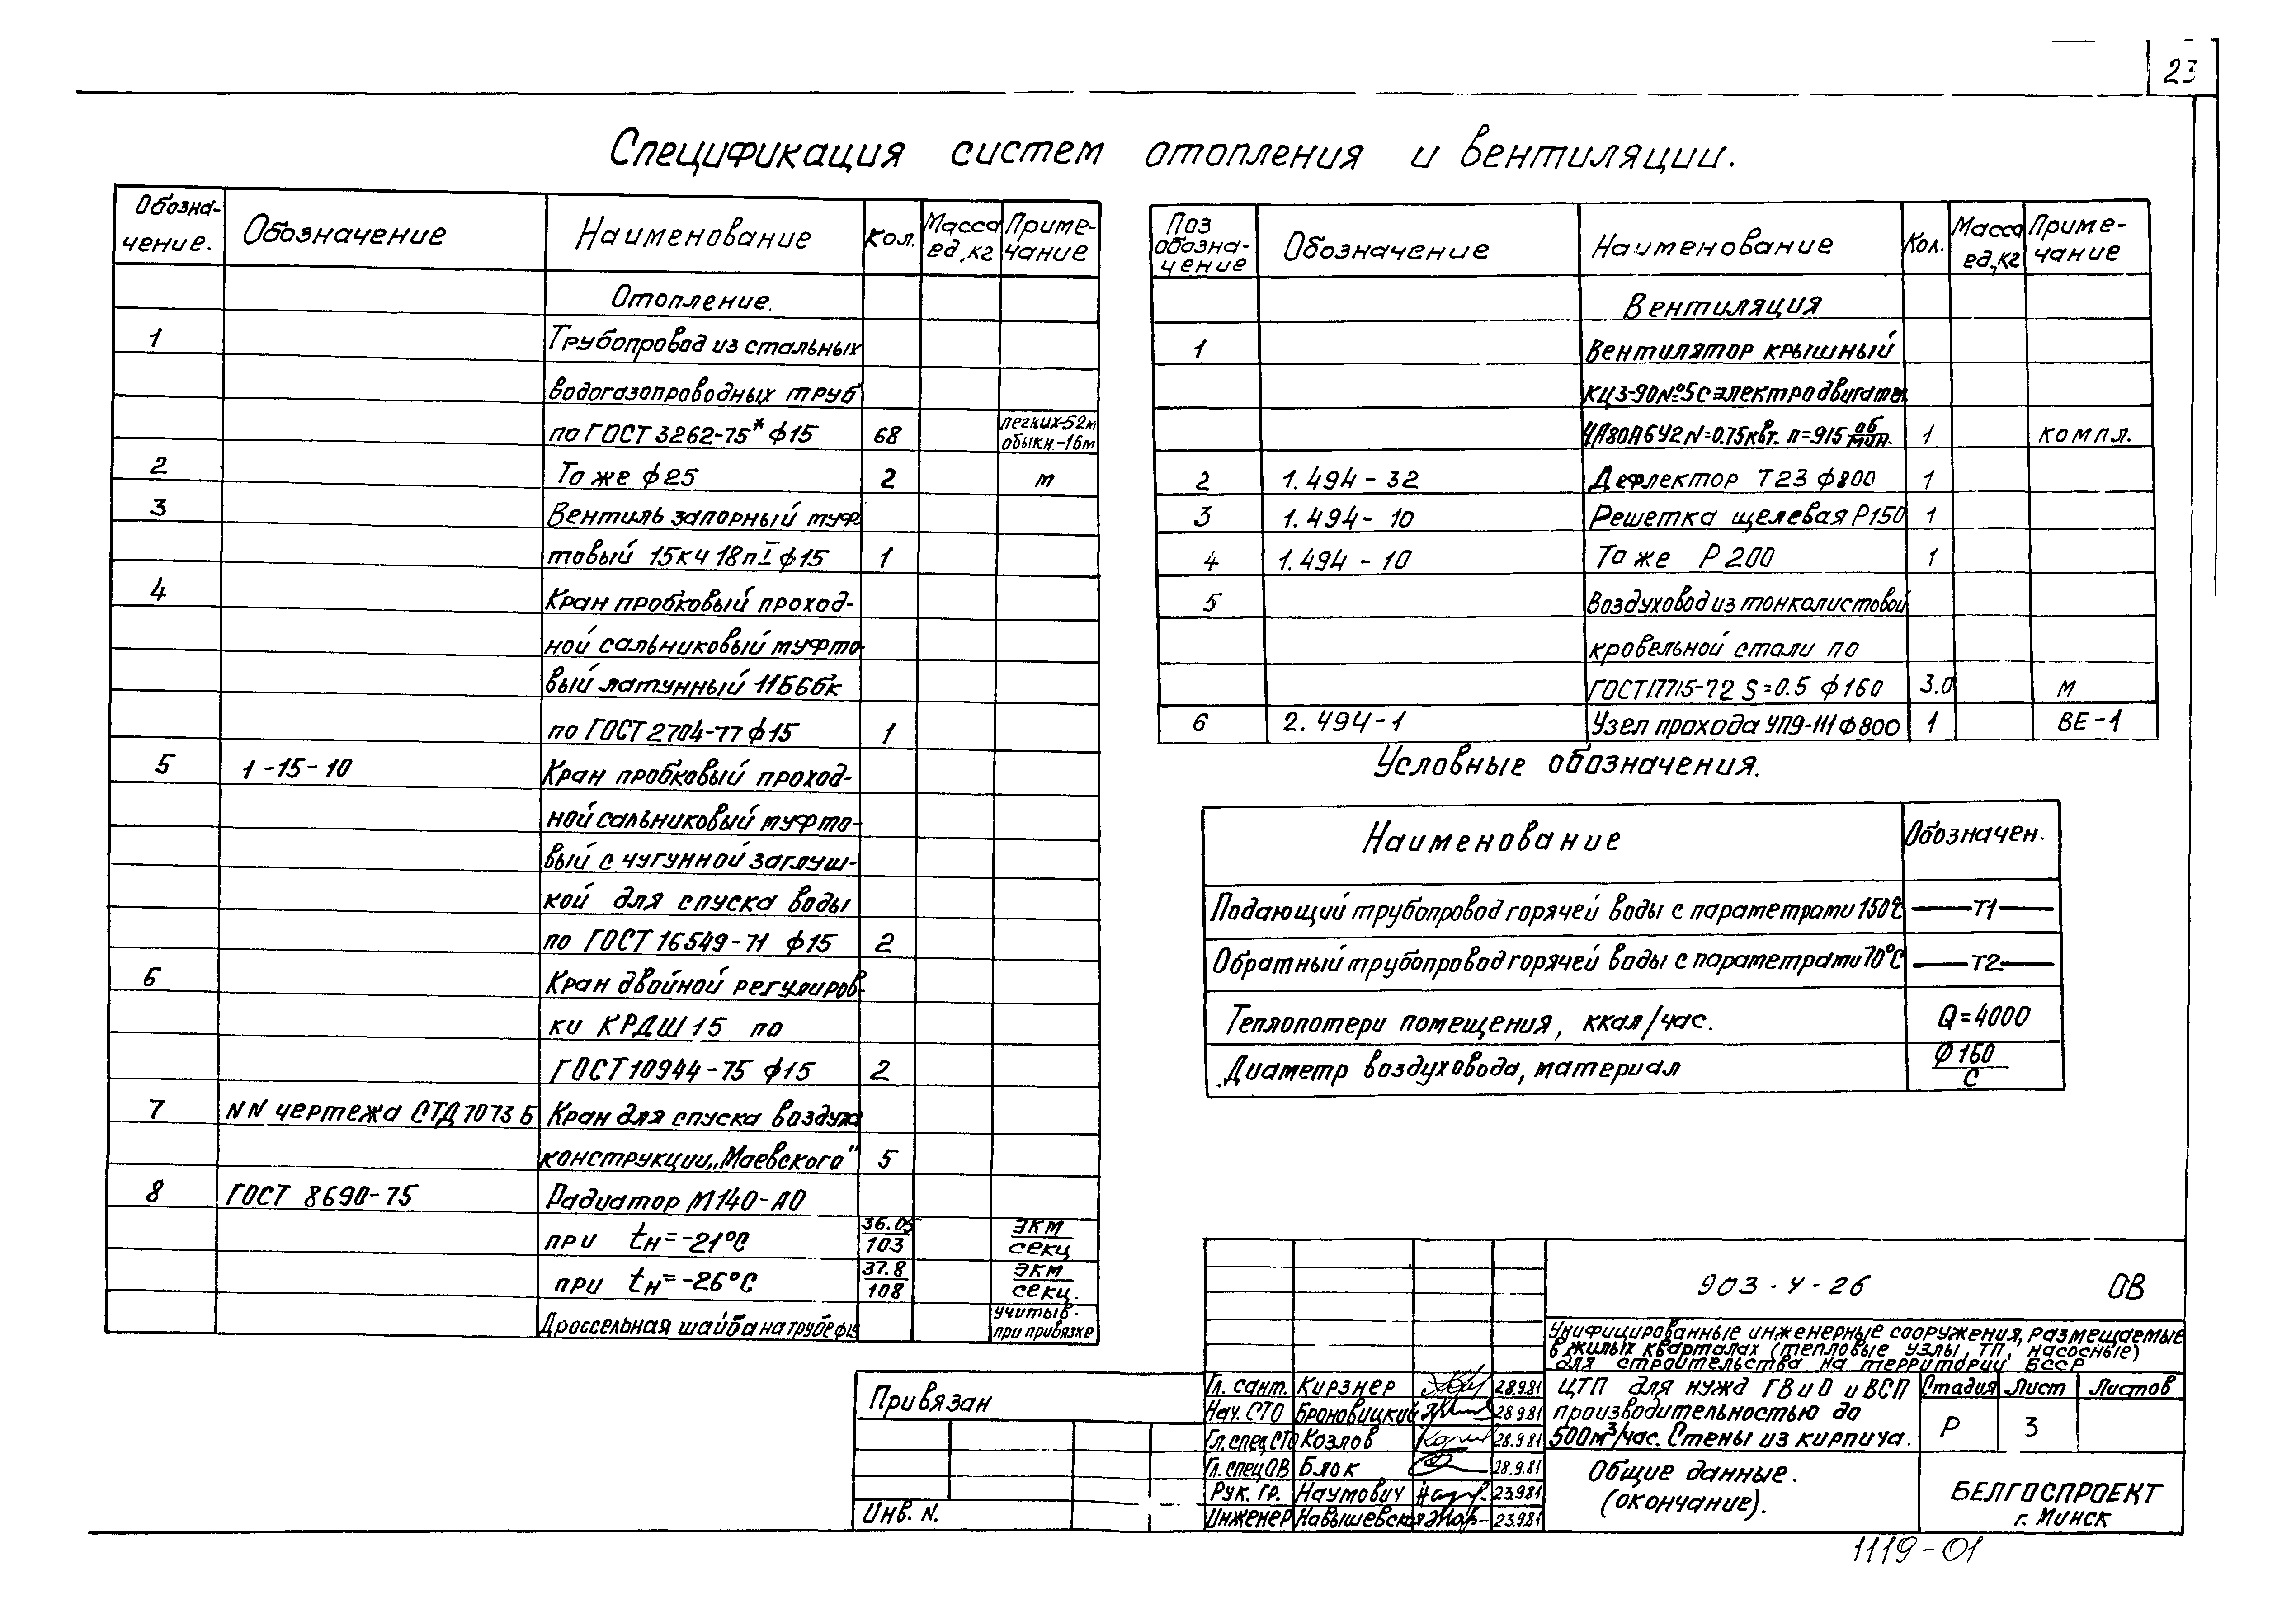 23
Спецификация систем отопления и вентиляции.
Обозна-
чение.
Обозначение
Наименование
Кол.
Масса
ед, кг
Приме-
чание
Отопление.
1 Трубопровод из стальных
водогазопроводных труб
по ГОСТ 3262-75* ф15 68 легких-52м
обыкн.-16м
2 То же ф25 2 м
3 Вентиль запорный муф
товый 15кч 18п I ф15 1
4 Кран пробковый проход-
ной сальниковый муфто-
вый латунный 11Б6бк
по ГОСТ 2704-77 ф15 1
5 1-15-10 Кран пробковый проход-
ной сальниковый муфто-
вый с чугунной заглуш-
кой для спуска воды
по ГОСТ 16549-71 ф15 2
6 Кран двойной регулиров-
ки КРДШ 15 по
ГОСТ 10944-75 ф15 2
7 NN чертежа СТД 7073 Б Кран для спуска воздуха
конструкции „Маевского" 5
8 ГОСТ 8690-75 Радиатор М140-АО
при tн=-21°С 36.05/103 экм/секц
при tн=-26°С 37.8/108 экм/секц.
Дроссельная шайба на трубе ф15 учитыв.
при привязке
Поз
обозна-
чение
Обозначение
Наименование
Кол.
Масса
ед., кг
Приме-
чание
Вентиляция
1 Вентилятор крышный
КЦ3-90№5 с электродвигател
4А80А6У2 N=0.75квт. n=915 об/мин. 1 компл.
2 1.494-32 Дефлектор Т23 ф800 1
3 1.494-10 Решетка щелевая Р150 1
4 1.494-10 То же Р200 1
5 Воздуховод из тонколистовой
кровельной стали по
ГОСТ 17715-72 S=0.5 ф160 3.0 м
6 2.494-1 Узел прохода УП9-111 ф800 1 ВЕ-1
Условные обозначения.
Наименование Обозначен.
Подающий трубопровод горячей воды с параметрами 150°С —Т1—
Обратный трубопровод горячей воды с параметрами 70°С —Т2—
Теплопотери помещения, ккал/час. Q=4000
Диаметр воздуховода, материал ф160/С
903-4-26 ОВ
Унифицированные инженерные сооружения, размещаемые
в жилых кварталах (тепловые узлы, ТП, насосные)
для строительства на территории БССР
Гл. сант. Кирзнер 28.9.81
Нач. СТО Броновицкий 28.9.81
Гл. спец СТО Козлов 28.9.81
Гл. спец ОВ Блок 28.9.81
Рук. гр. Наумович 23.9.81
Инженер Навышевская 23.9.81
ЦТП для нужд ГВ и О и ВСП
производительностью до
500м³/час. Стены из кирпича.
Стадия Лист Листов
Р 3
Общие данные.
(окончание).
БЕЛГОСПРОЕКТ
г. Минск
Привязан
Инв. N.
1119-01